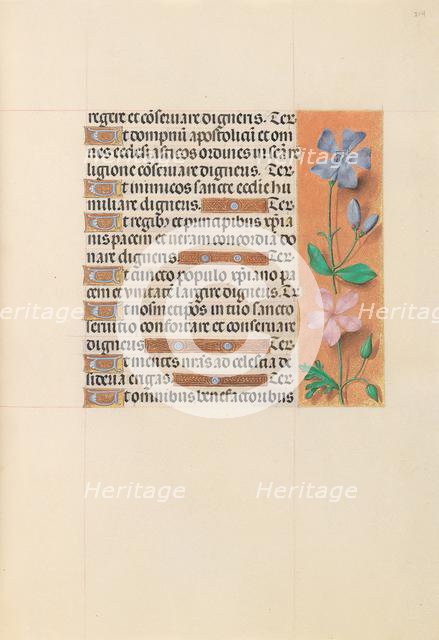 214
regere et cōseruare digneris. Ter.
Ut dompnū apostolicū et om
nes ecclesiasticos ordines in scā re
ligione cōseruare digneris. Ter.
Ut inimicos sancte ecclie hu
miliare digneris. Ter.
Ut regibꝫ et principibus xp̄ia
nis pacem et ueram concordiā do
nare digneris. Ter.
Ut cuncto populo xp̄iano pa
cem et vnitatē largire digneris. Ter
Ut nosmetipos in tuo sancto
seruitio confortare et conseruare
digneris Ter.
Ut mentes nrās ad celestia de
sideria erigas. Ter.
Ut omībus benefactoribus
Heritage Heritage Heritage
Heritage Heritage